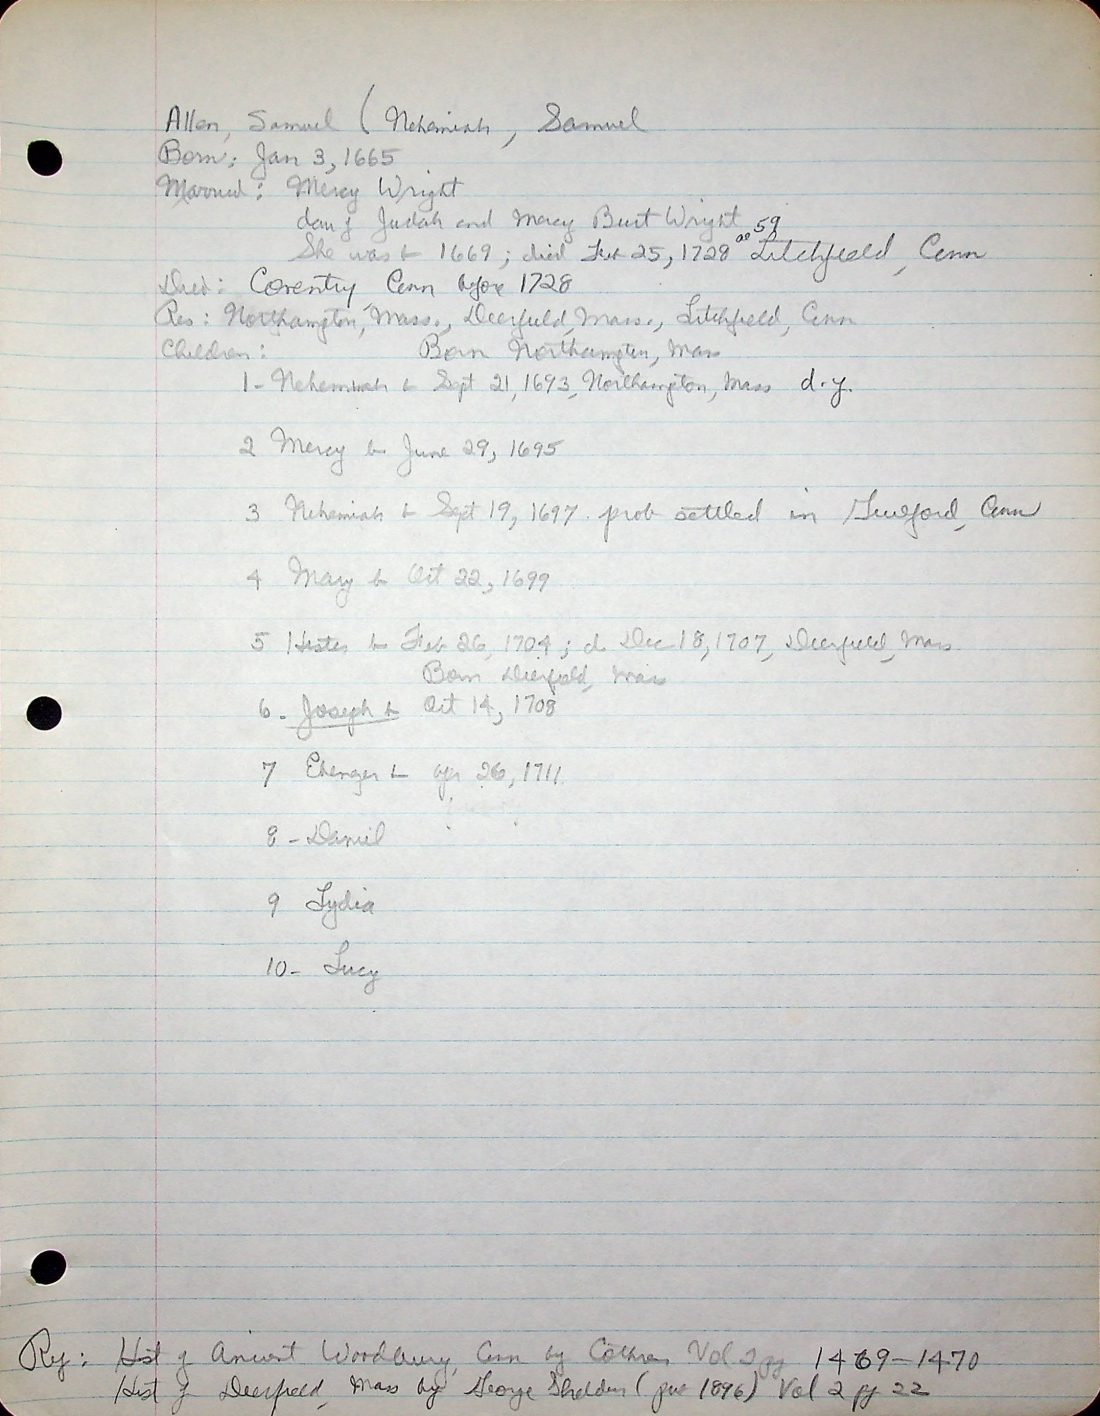 Allen, Samuel ( Nehemiah, Samuel
Born: Jan 3, 1665
Married: Mercy Wright
dau of Judah and Mercy Burt Wright
She was b 1669; died Feb 25, 1728 ae 59 Litchfield, Conn
Died: Coventry Conn before 1728
Res: Northampton, Mass., Deerfield, Mass., Litchfield, Conn
Children: Born Northampton, Mass
1- Nehemiah b Sept 21, 1693, Northampton, Mass d.y.
2 Mercy b June 29, 1695
3 Nehemiah b Sept 19, 1697. prob settled in Guilford, Conn
4 Mary b Oct 22, 1699
5 Hester b Feb 26, 1704; d Dec 18, 1707, Deerfield, Mass.
Born Deerfield, Mass
6. Joseph b Oct 14, 1708
7 Ebenezer b Apr 26, 1711.
8 - Daniel
9 Lydia
10- Lucy
Ref: Hist of Ancient Woodbury, Conn by Cothren Vol 2 pg 1469-1470
Hist of Deerfield, Mass by George Sheldon ( 1896) Vol 2 pg 22